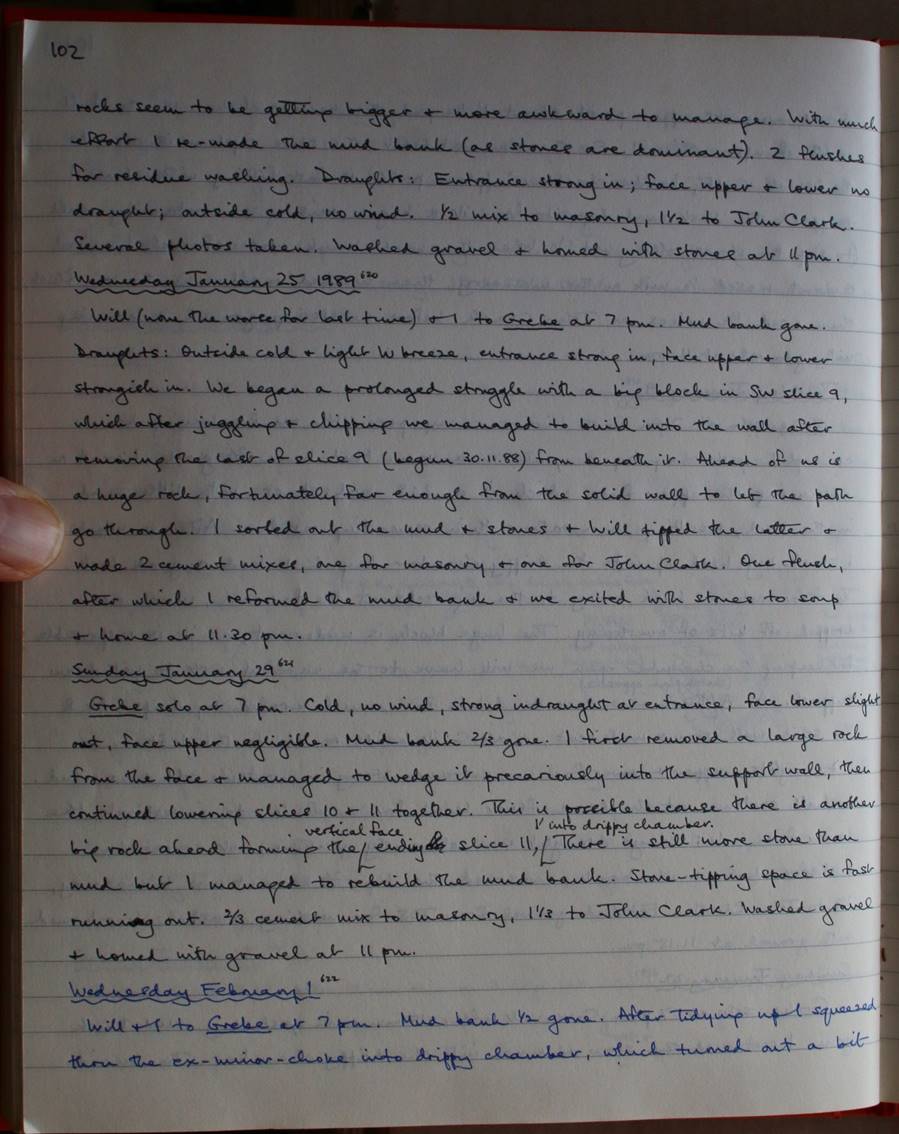 102
rocks seem to be getting bigger + more awkward to manage. With much
effort I re-made the mud bank (as stones are dominant). 2 flushes
for residue washing. Draughts: Entrance strong in; face upper + lower no
draught; outside cold, no wind. 1/2 mix to masonry, 1 1/2 to John Clark.
Several photos taken. Washed gravel + homed with stones at 11 pm.
Wednesday January 25 1989 620
Will (none the worse for last time) + I to Grebe at 7 pm. Mud bank gone.
Draughts: Outside cold + light W breeze, entrance strong in, face upper + lower
strongish in. We began a prolonged struggle with a big block in SW slice 9,
which after juggling + chipping we managed to build into the wall after
removing the last of slice 9 (begun 30.11.88) from beneath it. Ahead of us is
a huge rock, fortunately far enough from the solid wall to let the path
go through. I sorted out the mud + stones + Will tipped the latter +
made 2 cement mixes, one for masonry + one for John Clark. One flush,
after which I reformed the mud bank + we exited with stones to soup
+ home at 11.30 pm.
Sunday January 29 621
Grebe solo at 7 pm. Cold, no wind, strong indraught at entrance, face lower slight
out, face upper negligible. Mud bank 2/3 gone. I first removed a large rock
from the face + managed to wedge it precariously into the support wall, then
continued lowering slices 10 + 11 together. This is possible because there is another
vertical face into drippy chamber.
big rock ahead forming the ending slice 11, There is still more stone than
mud but I managed to rebuild the mud bank. Stone-tipping space is fast
running out. 2/3 cement mix to masonry, 1 1/3 to John Clark. Washed gravel
+ homed with gravel at 11 pm.
Wednesday February 1 622
Will + I to Grebe at 7 pm. Mud bank 1/2 gone. After tidying up I squeezed
thru the ex-minor-choke into drippy chamber, which turned out a bit